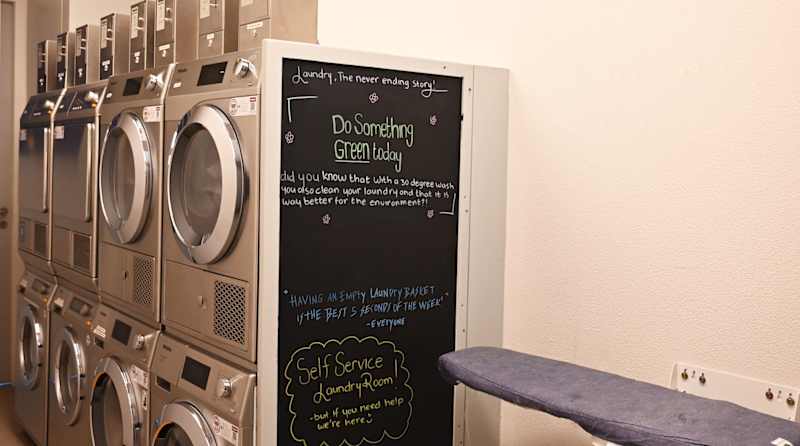 Laundry, The never ending story!
Do Something
Green today
did you know that with a 30 degree wash
you also clean your laundry and that it is
way better for the environment?!
"HAVING AN EMPTY LAUNDRY BASKET
is THE BEST 5 SECONDS OF THE WEEK"
- EVERYONE
Self Service
Laundry Room!
- but if you need help
we're here